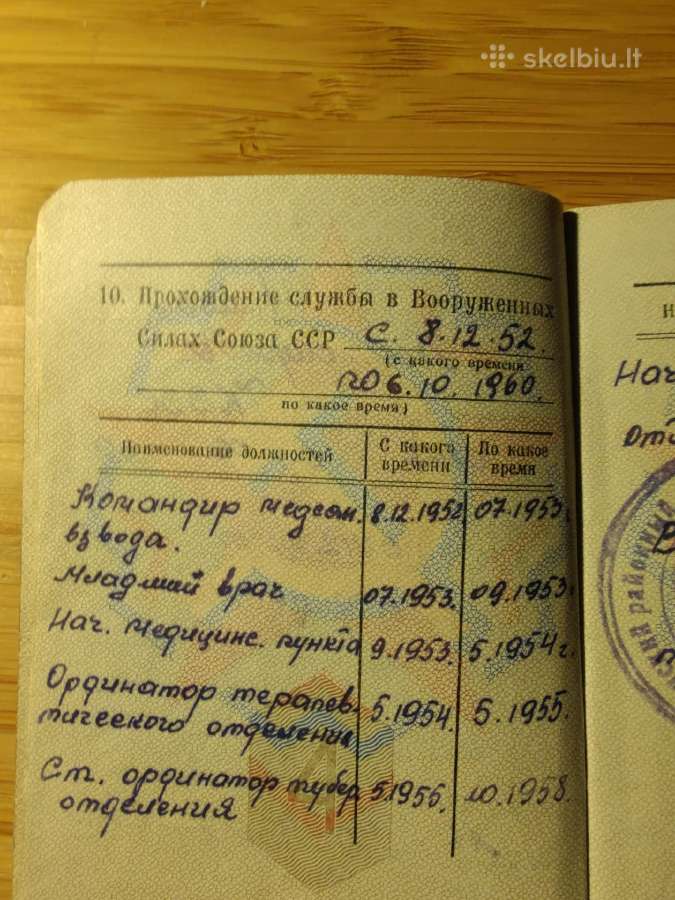 skelbiu.lt
10. Прохождение службы в Вооруженных
Силах Союза ССР с. 8.12.52.
(с какого времени
по 6.10.1960.
по какое время)
Наименование должностей С какого времени По какое время
Командир медсан. 8.12.1952 07.1953г.
взвода.
Младший врач 07.1953. 09.1953г.
Нач. медицинс. пункта 9.1953. 5.1954г.
Ординатор терапев-
тического отделения 5.1954. 5.1955.
Ст. ординатор тубер. 5.1956. 10.1958.
отделения
4
Нач
отд
ский районный